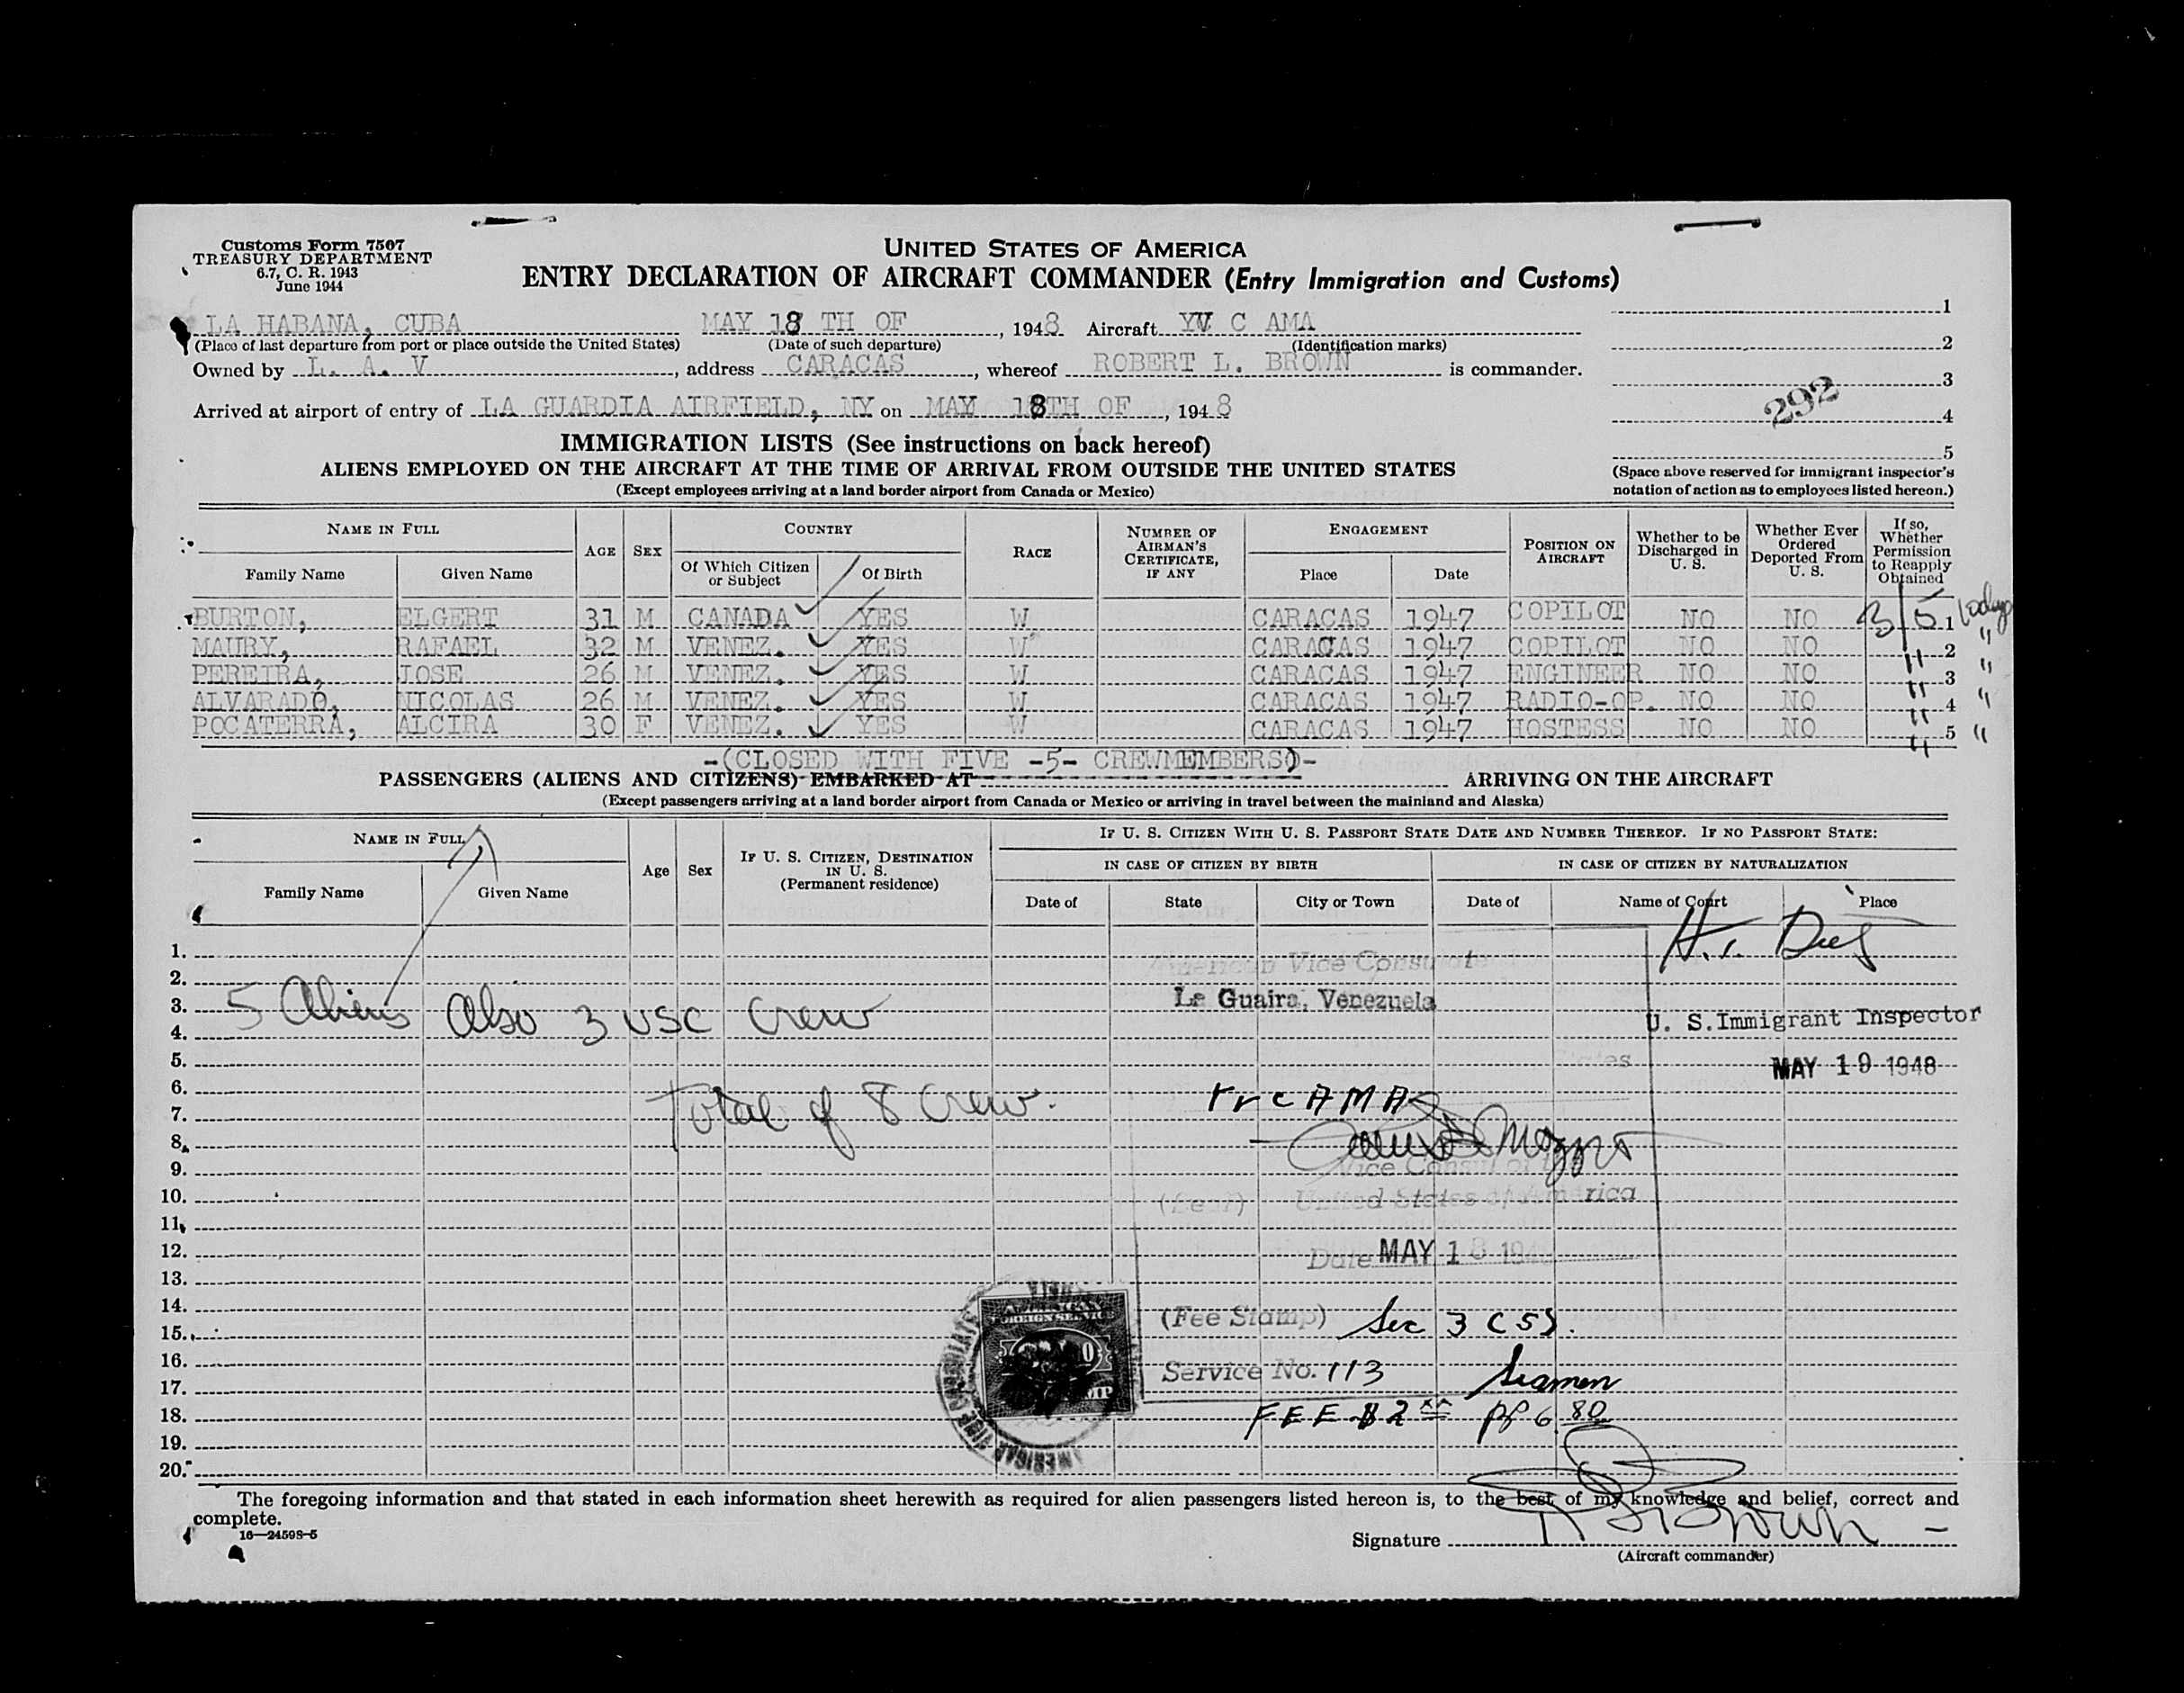 Customs Form 7507
TREASURY DEPARTMENT
6.7, C. R. 1943
June 1944
UNITED STATES OF AMERICA
ENTRY DECLARATION OF AIRCRAFT COMMANDER (Entry Immigration and Customs)
LA HABANA, CUBA MAY 18 TH OF, 1948 Aircraft YV C AMA
(Place of last departure from port or place outside the United States) (Date of such departure) (Identification marks)
Owned by L. A. V, address CARACAS, whereof ROBERT L. BROWN is commander.
Arrived at airport of entry of LA GUARDIA AIRFIELD, NY on MAY 18TH OF, 1948
1
2
3
292
4
5
(Space above reserved for immigrant inspector's
notation of action as to employees listed hereon.)
IMMIGRATION LISTS (See instructions on back hereof)
ALIENS EMPLOYED ON THE AIRCRAFT AT THE TIME OF ARRIVAL FROM OUTSIDE THE UNITED STATES
(Except employees arriving at a land border airport from Canada or Mexico)
NAME IN FULL AGE SEX COUNTRY RACE NUMBER OF AIRMAN'S CERTIFICATE, IF ANY ENGAGEMENT POSITION ON AIRCRAFT Whether to be Discharged in U. S. Whether Ever Ordered Deported From U. S. If so, Whether Permission to Reapply Obtained
Family Name Given Name Of Which Citizen or Subject Of Birth Place Date
BURTON, ELGERT 31 M CANADA YES W CARACAS 1947 COPILOT NO NO 3/5 1 10 days
MAURY, RAFAEL 32 M VENEZ. YES W CARACAS 1947 COPILOT NO NO " 2 "
PEREIRA, JOSE 26 M VENEZ. YES W CARACAS 1947 ENGINEER NO NO " 3 "
ALVARADO, NICOLAS 26 M VENEZ. YES W CARACAS 1947 RADIO-OP. NO NO " 4 "
POCATERRA, ALCIRA 30 F VENEZ. YES W CARACAS 1947 HOSTESS NO NO " 5 "
-(CLOSED WITH FIVE -5- CREWMEMBERS)-
PASSENGERS (ALIENS AND CITIZENS) EMBARKED AT ARRIVING ON THE AIRCRAFT
(Except passengers arriving at a land border airport from Canada or Mexico or arriving in travel between the mainland and Alaska)
NAME IN FULL Age Sex IF U. S. CITIZEN, DESTINATION IN U. S. (Permanent residence) IF U. S. CITIZEN WITH U. S. PASSPORT STATE DATE AND NUMBER THEREOF. IF NO PASSPORT STATE:
IN CASE OF CITIZEN BY BIRTH IN CASE OF CITIZEN BY NATURALIZATION
Family Name Given Name Date of State City or Town Date of Name of Court Place
1.
2. American Vice Consulate
3. La Guaira, Venezuela
5 Aliens Also 3 USC Crew
4. U. S. Immigrant Inspector
5. MAY 19 1948
6.
YVC AMA
Total of 8 Crew.
7.
8.
9. Vice Consul of the
10. (Seal) United States of America
11.
12. Date MAY 18 1948
13.
14.
15. (Fee Stamp) Sec 3 (5).
16.
17. Service No. 113 Seamen
18. FEE $2 xx pp 6.80
19.
20.
FOREIGN SERVICE
AMERICAN VICE CONSULATE
The foregoing information and that stated in each information sheet herewith as required for alien passengers listed hereon is, to the best of my knowledge and belief, correct and
complete.
16—24598-5
Signature R L Brown
(Aircraft commander)